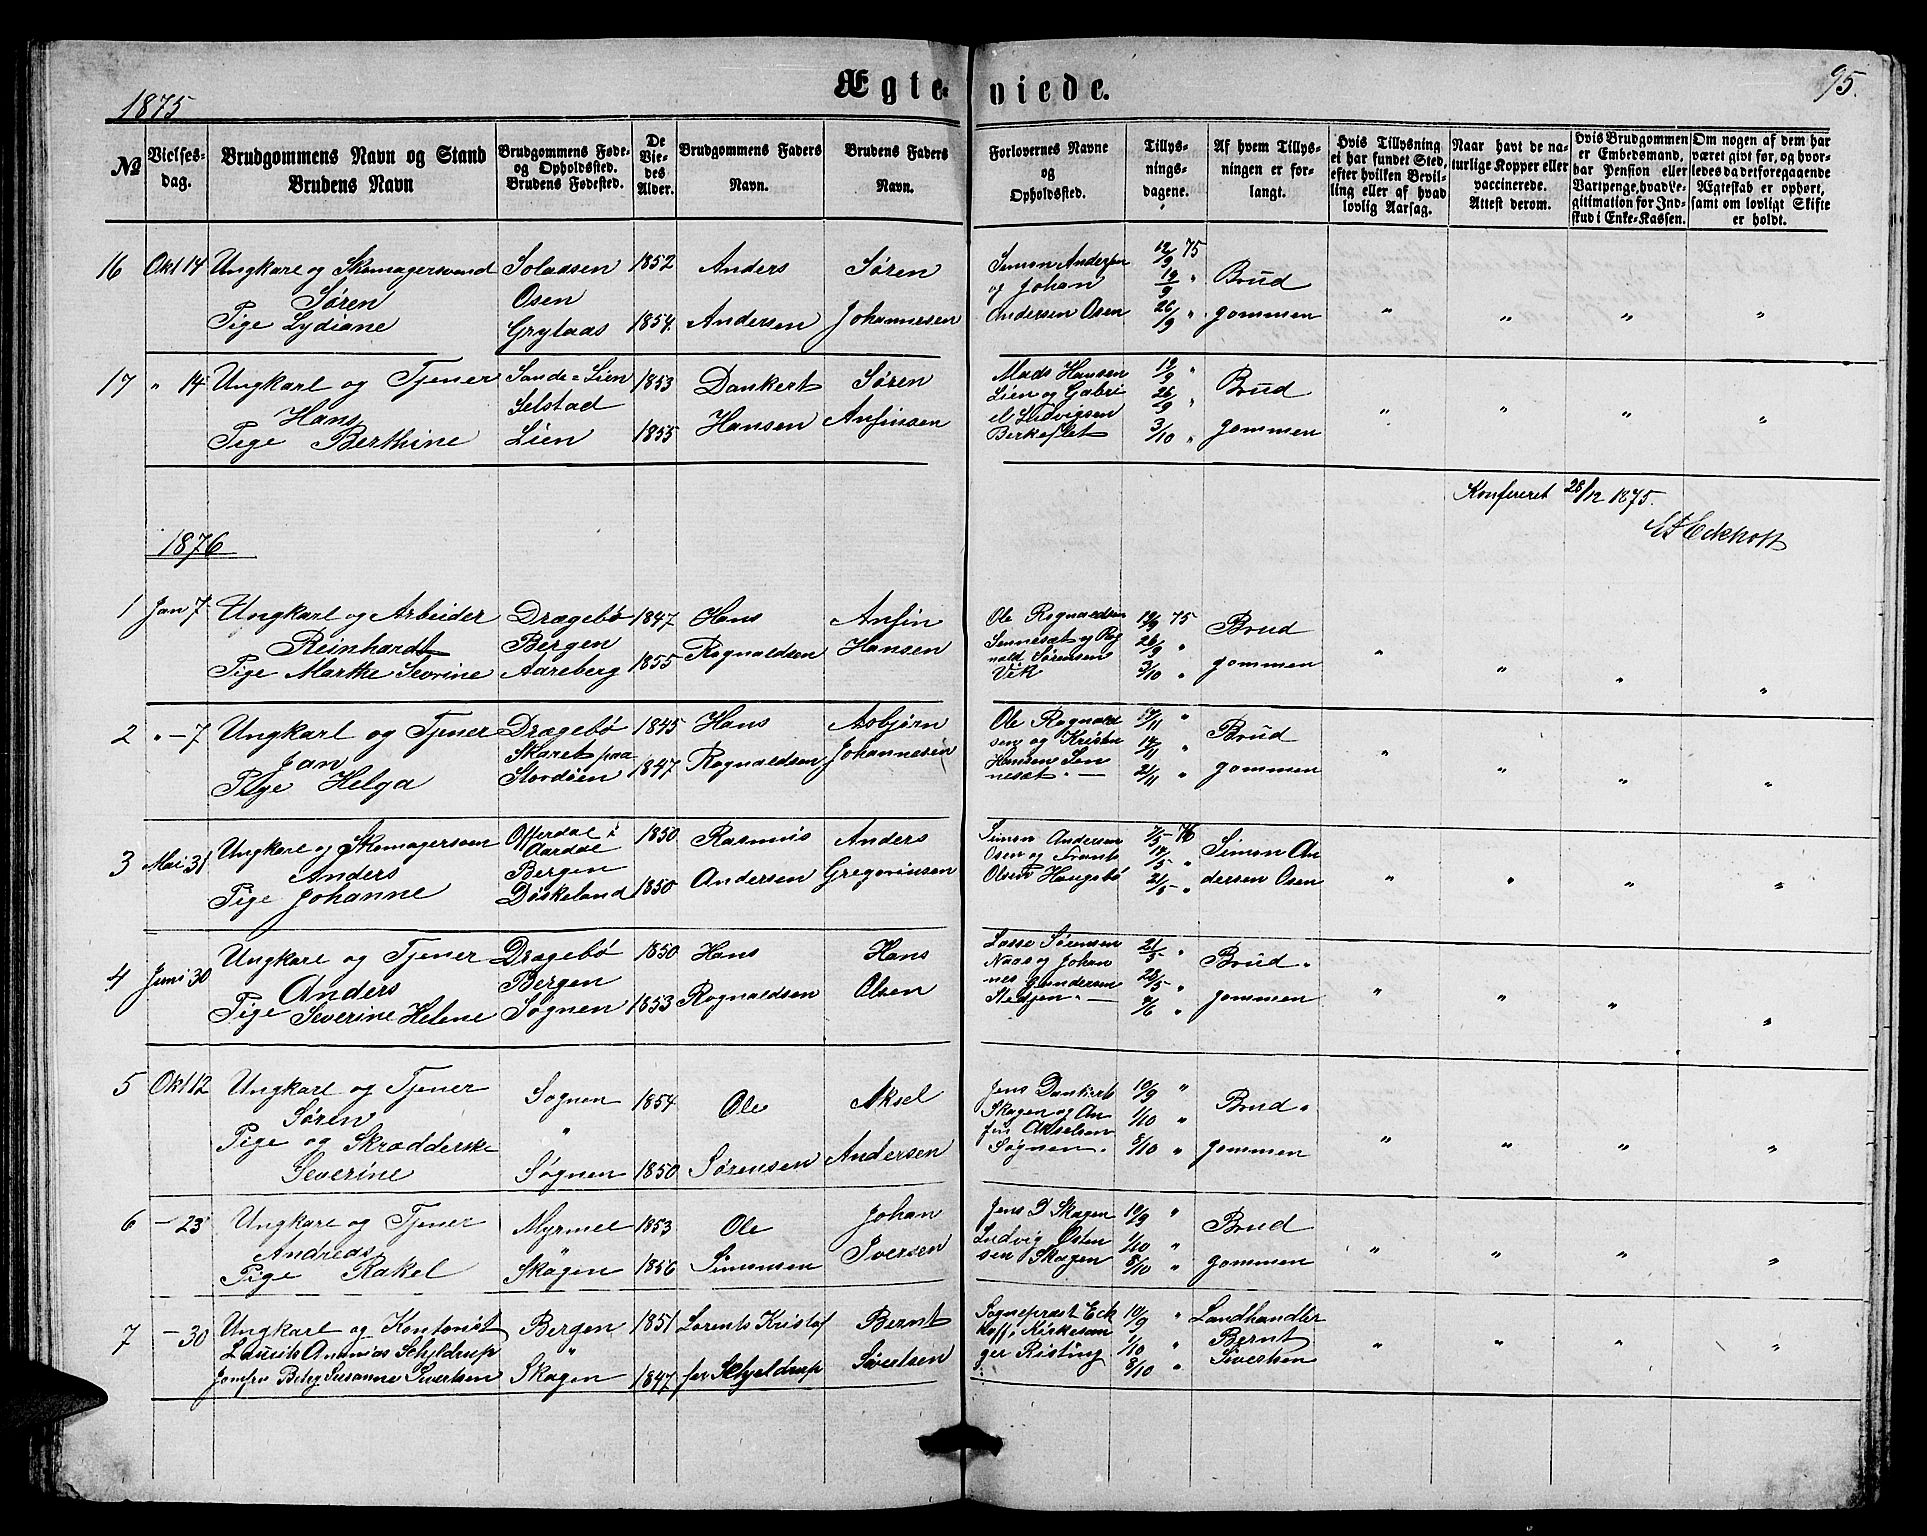 1875
Ægteviede.
95.
№
Vielses-
dag.
Brudgommens Navn og Stand
Brudens Navn
Brudgommens Føde-
og Opholdssted.
Brudens Fødested.
De
Vie-
des
Alder.
Brudgommens Faders
Navn.
Brudens Faders
Navn.
Forlovernes Navne
og
Opholdssted.
Tillys-
nings-
dagene.
Af hvem Tillys-
ningen er for-
langt.
Hvis Tillysning
ei har fundet Sted,
efter hvilken Bevil-
ling eller af hvad
lovlig Aarsag.
Naar havt de na-
turlige Kopper eller
vaccinerede.
Attest derom.
Hvis Brudgommen
er Embedsmand,
har Pension eller
Vartpenge, hvad Le-
gitimation for Ind-
skud i Enke-Kassen.
Om nogen af dem har
været gift før, og hvor-
ledes da det foregaaende
Ægteskab er ophørt,
samt om lovligt Skifte
er holdt.
16 Okt 14 Ungkarl og Skomagersvend
Søren
Pige Lydiane
Osen
Grytaas
1852
1854
Anders
Andersen
Søren
Johannesen
Simon Andersen
og Johan
Andersen Osen
12/9 75
19/9 "
26/9 "
Brud
gommen
" " " "
17 " 14 Ungkarl og Tjener
Hans
Pige Berthine
Sande - Lien
Selstad
Lien
1853
1855
Dankert
Hansen
Søren
Anfinsen
Mads Hansen
Lien og Gabri
el Ludvigsen
Birkeflet
19/9 "
26/9 "
3/10 "
Brud
gommen
" " " "
Konfereret 28/12 1875.
Eckhoff
1876
1 Jan 7 Ungkarl og Arbeider
Reinhardt
Pige Marthe Sevrine
Dragebø
Bergen
Aareberg
1847
1855
Hans
Rognaldsen
Anfin
Hansen
Ole Rognaldsen
Sennesæt og Rog
nald Sørensen
Vik
19/9 75
26/9 "
3/10 "
Brud
gommen
" " " "
2 " - 7 Ungkarl og Tjener
Jan
Pige Helga
Dragebø
Skaret paa
Stordøen
1845
1847
Hans
Rognaldsen
Asbjørn
Johannesen
Ole Rognald
sen og Kristen
Hansen Sen
nesæt. -
14/11 "
21/11 "
Brud
gommen
" " " "
3 Mai 31 Ungkarl og Skomagersven
Anders
Pige Johanne
Offerdal i
Aardal
Bergen
Døskeland
1850
1850
Rasmus
Andersen
Anders
Gregoriusen
Simon Andersen
Osen og Frants
Olsen Haugsbø
7/5 - 76
14/5 "
21/5 "
Simon An
dersen Osen
" " " "
4 Juni 30 Ungkarl og Tjener
Anders
Pige Severine Helene
Dragebø
Bergen
Søgnen
1850
1853
Hans
Rognaldsen
Hans
Olsen
Lasse Sørensen
Naas og Johan
nes Gundersen
Stedjen. -
21/5 "
28/5 "
4/6 "
Brud
gommen
" " " "
5 Okt 12 Ungkarl og Tjener
Søren
Pige og Skrædderske
Severine
Søgnen
"
Søgnen
1854
1850
Ole
Sørensen
Aksel
Andersen
Jens Dankerts
Skagen og An
fin Akselsen
Søgnen.
10/9 "
1/10 "
8/10 "
Brud
gommen
" " " "
6 - 23 Ungkarl og Tjener
Andreas
Pige Rakel
Myrmel
Skagen
1853
1856
Ole
Simonsen
Johan
Iversen
Jens D Skagen
Ludvig Osten
sen Skagen
10/9 "
1/10 "
8/10 "
Brud
gommen
" " " "
7 - 30 Ungkarl og Kontorist
Laurits Ananias Schjeldrup
Jomfru Betzy Susanne Sivertsen
Bergen
"
Skagen
1851
1847
Lorents Kristof
fer Schjeldrup
Bernt
Sivertsen
Sogneprest Eck
hoff, Kirkesan
ger Risting
10/9 "
1/10 "
8/10 "
Landhandler
Bernt
Sivertsen
" " " "